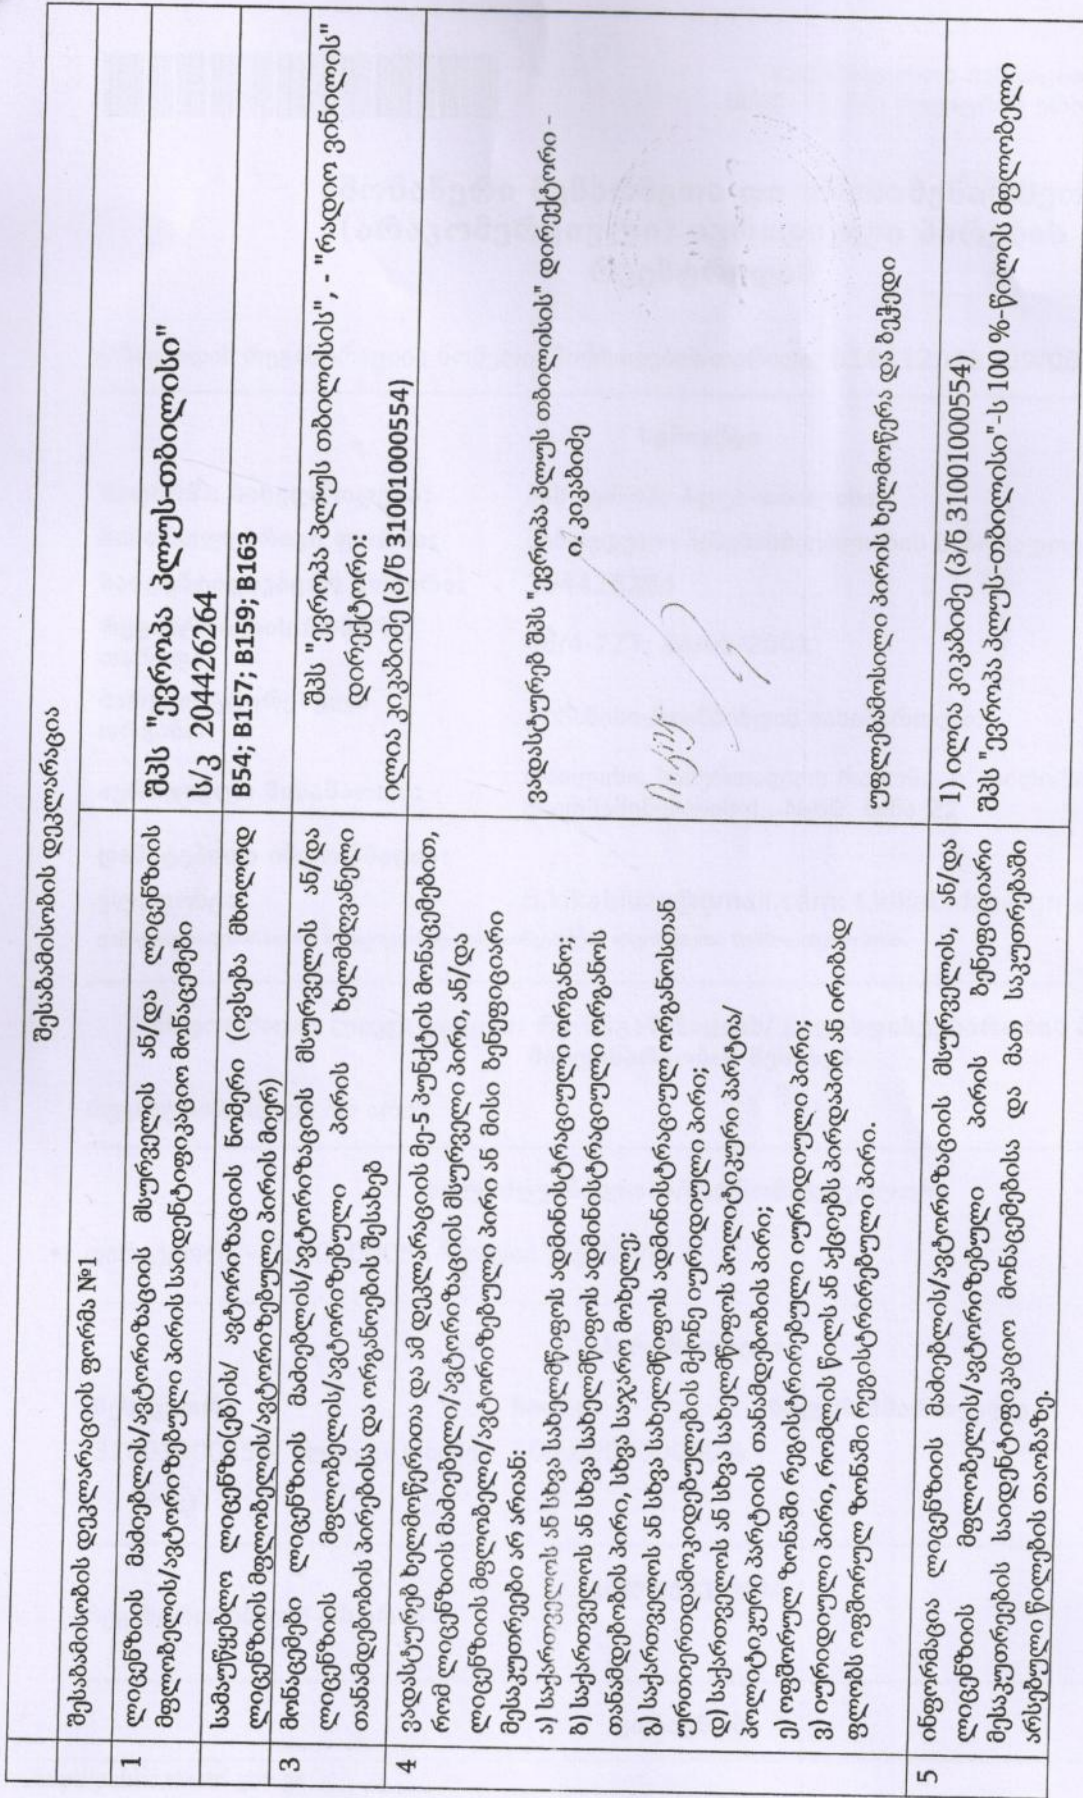 შესაბამისობის დეკლარაცია
შესაბამისობის დეკლარაციის ფორმა №1
1
ლიცენზიის მაძიებლის/ავტორიზაციის მსურველის ან/და ლიცენზიის
მფლობელის/ავტორიზებული პირის საიდენტიფიკაციო მონაცემები
შპს "ევროპა პლუს-თბილისი"
ს/კ 204426264
სამაუწყებლო ლიცენზი(ებ)ის/ ავტორიზაციის ნომერი (ივსება მხოლოდ
ლიცენზიის მფლობელის/ავტორიზებული პირის მიერ)
B54; B157; B159; B163
3
მონაცემები ლიცენზიის მაძიებლის/ავტორიზაციის მსურველის ან/და
ლიცენზიის მფლობელის/ავტორიზებული პირის ხელმძღვანელი
თანამდებობის პირებისა და ორგანოების შესახებ
შპს "ევროპა პლუს თბილისის", - "რადიო ვინილის"
დირექტორი:
ილია კიკაბიძე (პ/ნ 31001000554)
4
ვადასტურებ ხელმოწერითა და ამ დეკლარაციის მე-5 პუნქტის მონაცემებით,
რომ ლიცენზიის მაძიებელი/ავტორიზაციის მსურველი პირი, ან/და
ლიცენზიის მფლობელი/ავტორიზებული პირი ან მისი ბენეფიციარი
მესაკუთრეები არ არიან:
ა) საქართველოს ან სხვა სახელმწიფოს ადმინისტრაციული ორგანო;
ბ) საქართველოს ან სხვა სახელმწიფოს ადმინისტრაციული ორგანოს
თანამდებობის პირი, სხვა საჯარო მოხელე;
გ) საქართველოს ან სხვა სახელმწიფოს ადმინისტრაციულ ორგანოსთან
ურთიერთდამოკიდებულების მქონე იურიდიული პირი;
დ) საქართველოს ან სხვა სახელმწიფოს პოლიტიკური პარტია/
პოლიტიკური პარტიის თანამდებობის პირი;
ე) ოფშორულ ზონაში რეგისტრირებული იურიდიული პირი;
ვ) იურიდიული პირი, რომლის წილს ან აქციებს პირდაპირ ან ირიბად
ფლობს ოფშორულ ზონაში რეგისტრირებული პირი.
ვადასტურებ შპს "ევროპა პლუს თბილისის" დირექტორი -
ი.კიკაბიძე
უფლებამოსილი პირის ხელმოწერა და ბეჭედი
5
ინფორმაცია ლიცენზიის მაძიებლის/ავტორიზაციის მსურველის, ან/და
ლიცენზიის მფლობელის/ავტორიზებული პირის ბენეფიციარი
მესაკუთრების საიდენტიკაციო მონაცემებისა და მათ საკუთრებაში
არსებული წილების თაობაზე.
1) ილია კიკაბიძე (პ/ნ 31001000554)
შპს "ევროპა პლუს-თბილისი"-ს 100 %-წილის მფლობელი